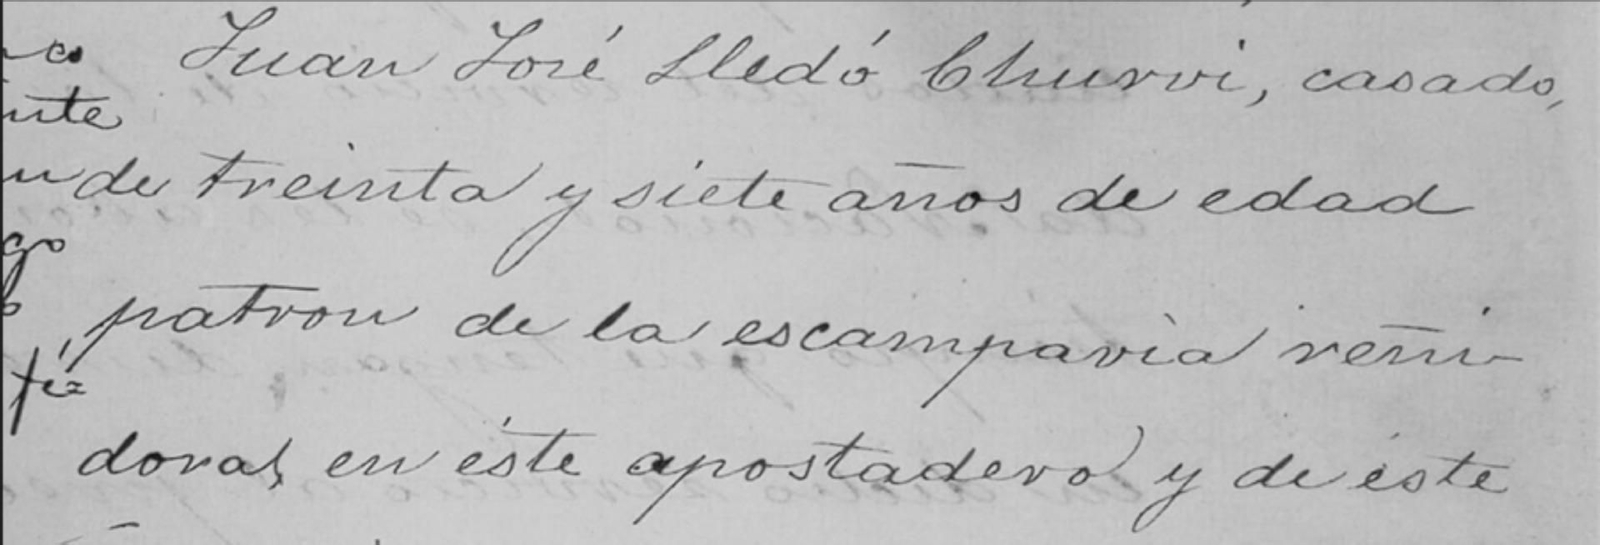 co
Juan José Lledó Churvi, casado,
nte
n de treinta y siete años de edad
go
patron de la escampavia reñi-
dora, en éste apostadero y de éste